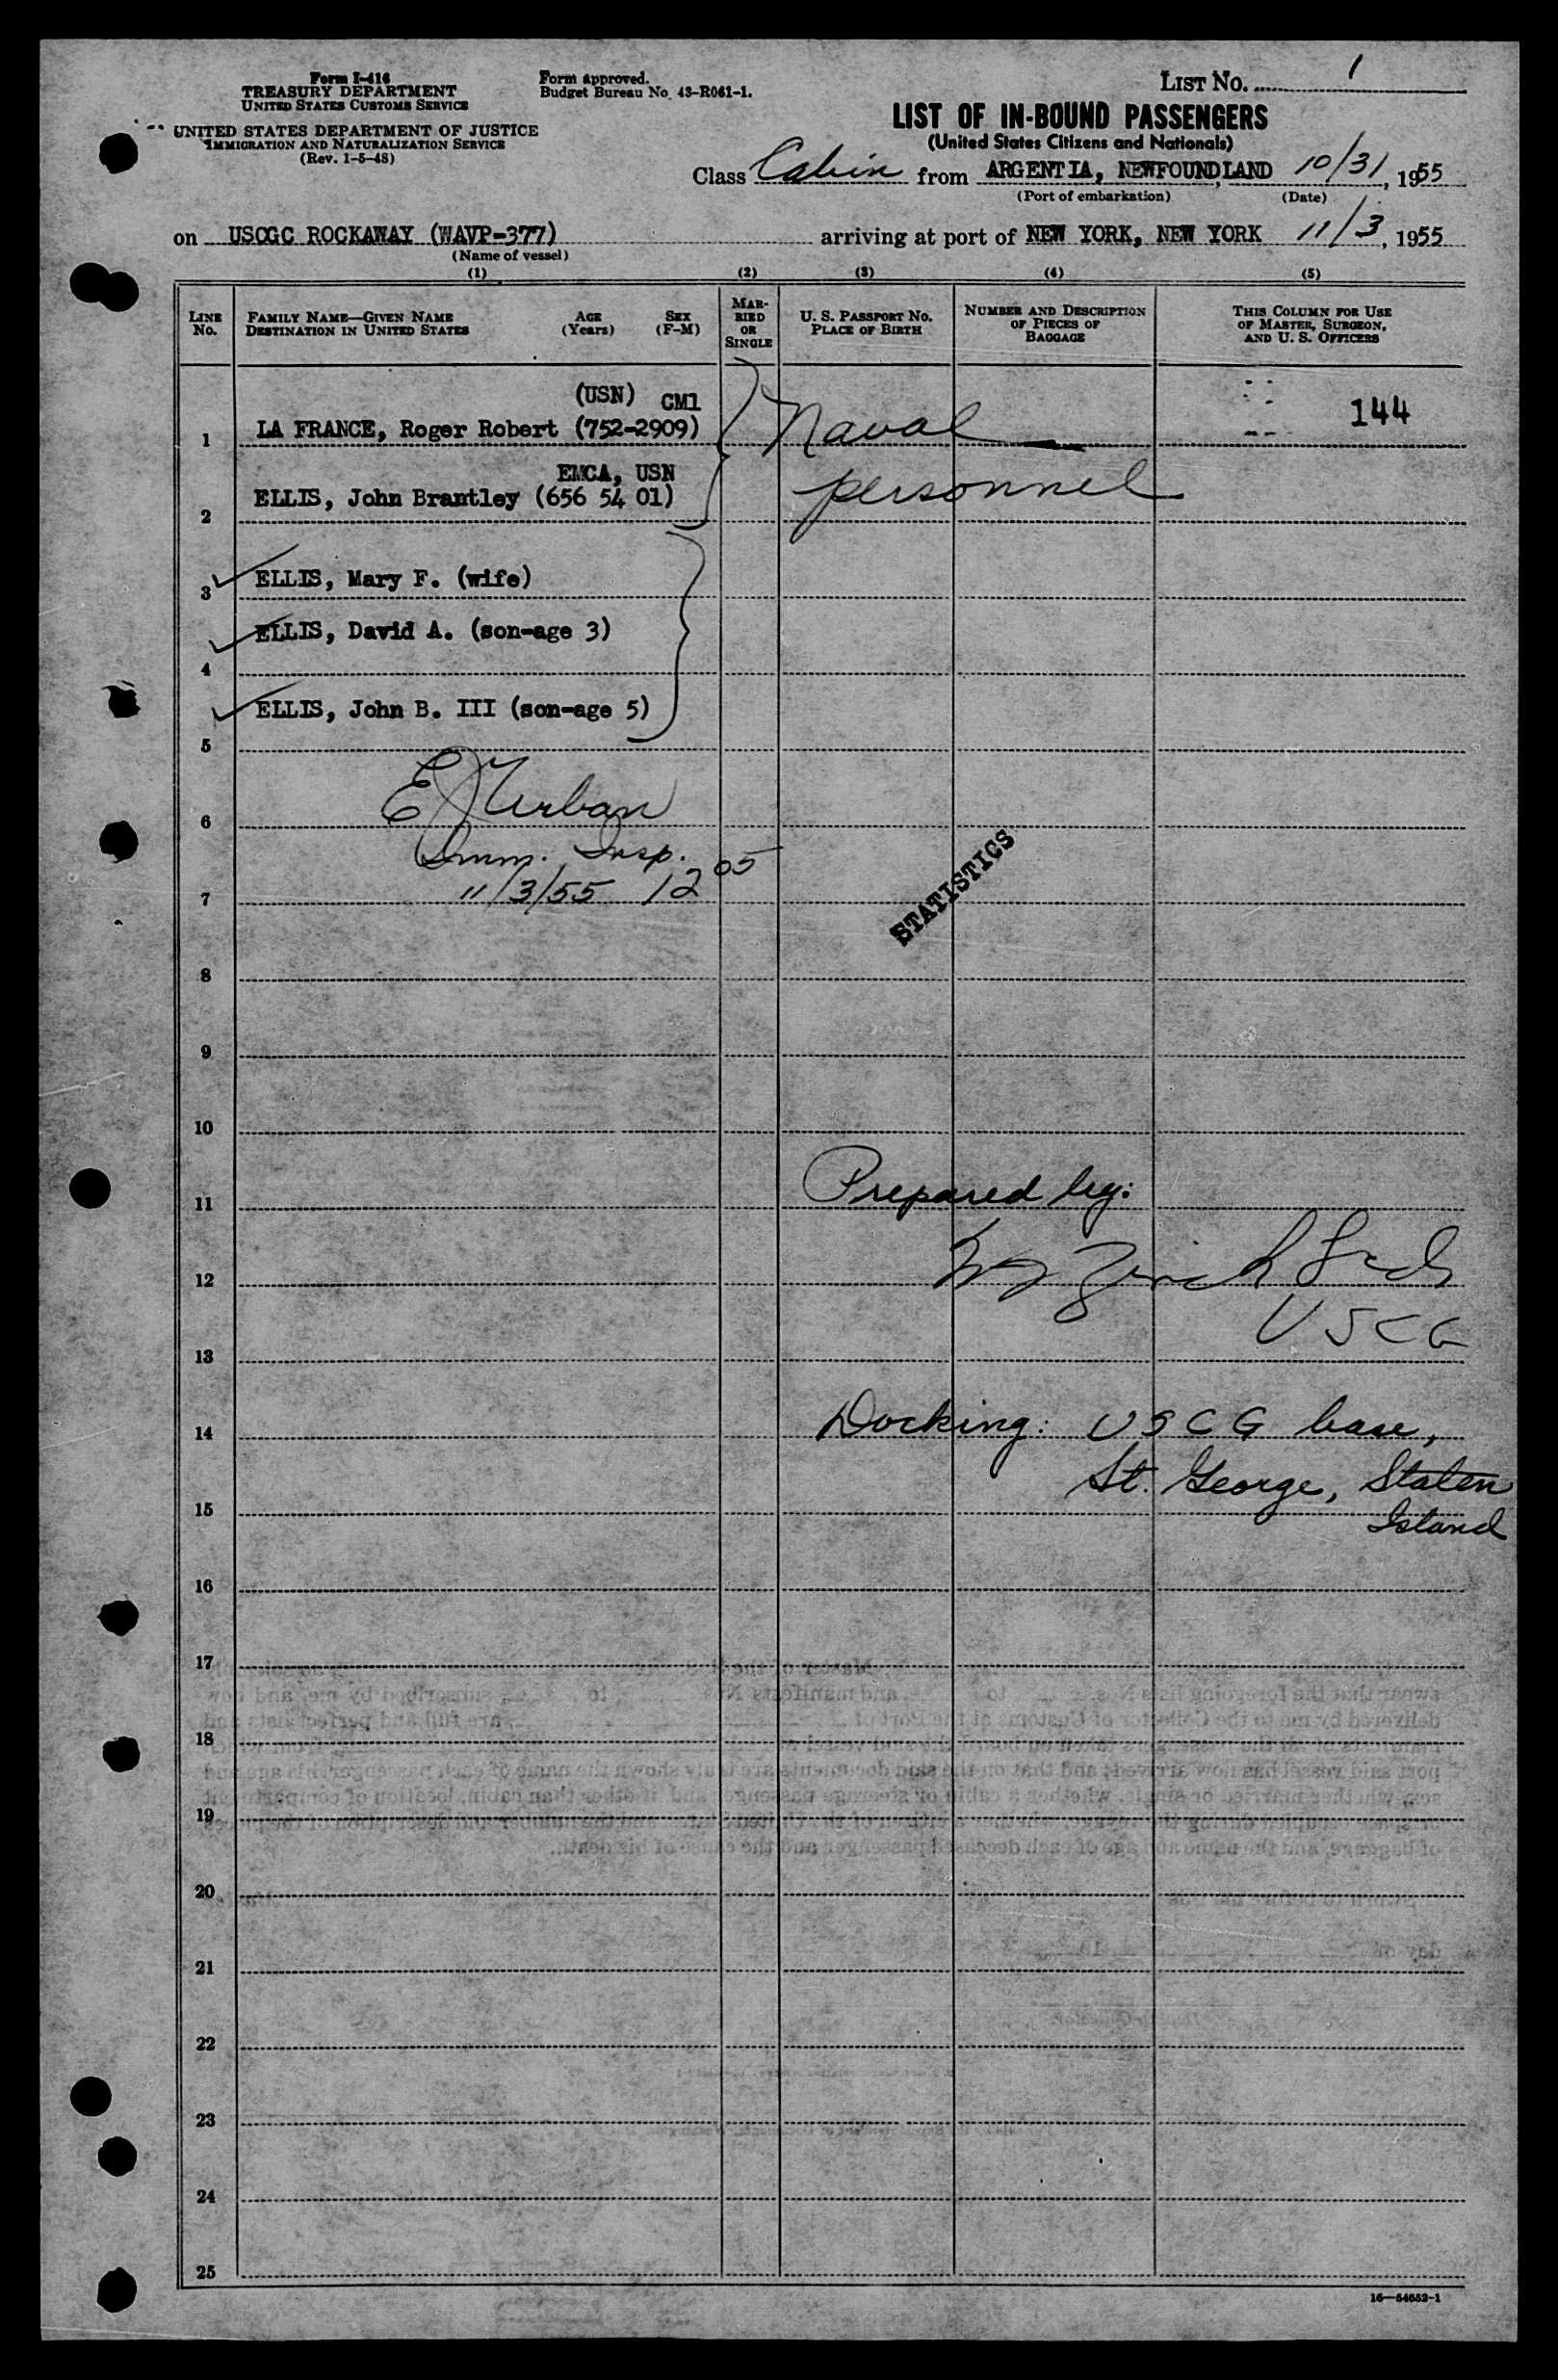 Form I-416
TREASURY DEPARTMENT
UNITED STATES CUSTOMS SERVICE
UNITED STATES DEPARTMENT OF JUSTICE
IMMIGRATION AND NATURALIZATION SERVICE
(Rev. 1-5-48)
Form approved.
Budget Bureau No. 43-R061-1.
LIST NO. 1
LIST OF IN-BOUND PASSENGERS
(United States Citizens and Nationals)
Class Cabin from ARGENTIA, NEWFOUNDLAND 10/31, 1955
(Port of embarkation) (Date)
on USCGC ROCKAWAY (WAVP-377) arriving at port of NEW YORK, NEW YORK 11/3, 1955
(Name of vessel)
(1) (2) (3) (4) (5)
LINE No.
FAMILY NAME—GIVEN NAME
DESTINATION IN UNITED STATES
AGE (Years)
SEX (F-M)
MARRIED OR SINGLE
U. S. PASSPORT NO.
PLACE OF BIRTH
NUMBER AND DESCRIPTION OF PIECES OF BAGGAGE
THIS COLUMN FOR USE OF MASTER, SURGEON, AND U. S. OFFICERS
(USN) CM1
1 LA FRANCE, Roger Robert (752-2909) Naval 144
EMCA, USN
2 ELLIS, John Brantley (656 54 01) personnel
3 ELLIS, Mary F. (wife)
4 ELLIS, David A. (son-age 3)
5 ELLIS, John B. III (son-age 5)
6 E J Urban
Imm. Insp.
7 11/3/55 12 05
STATISTICS
8
9
10
11 Prepared by:
12
13 USCG
14 Docking: USCG base,
15 St. George, Staten
Island
16
17
18
19
20
21
22
23
24
25
16—54652-1